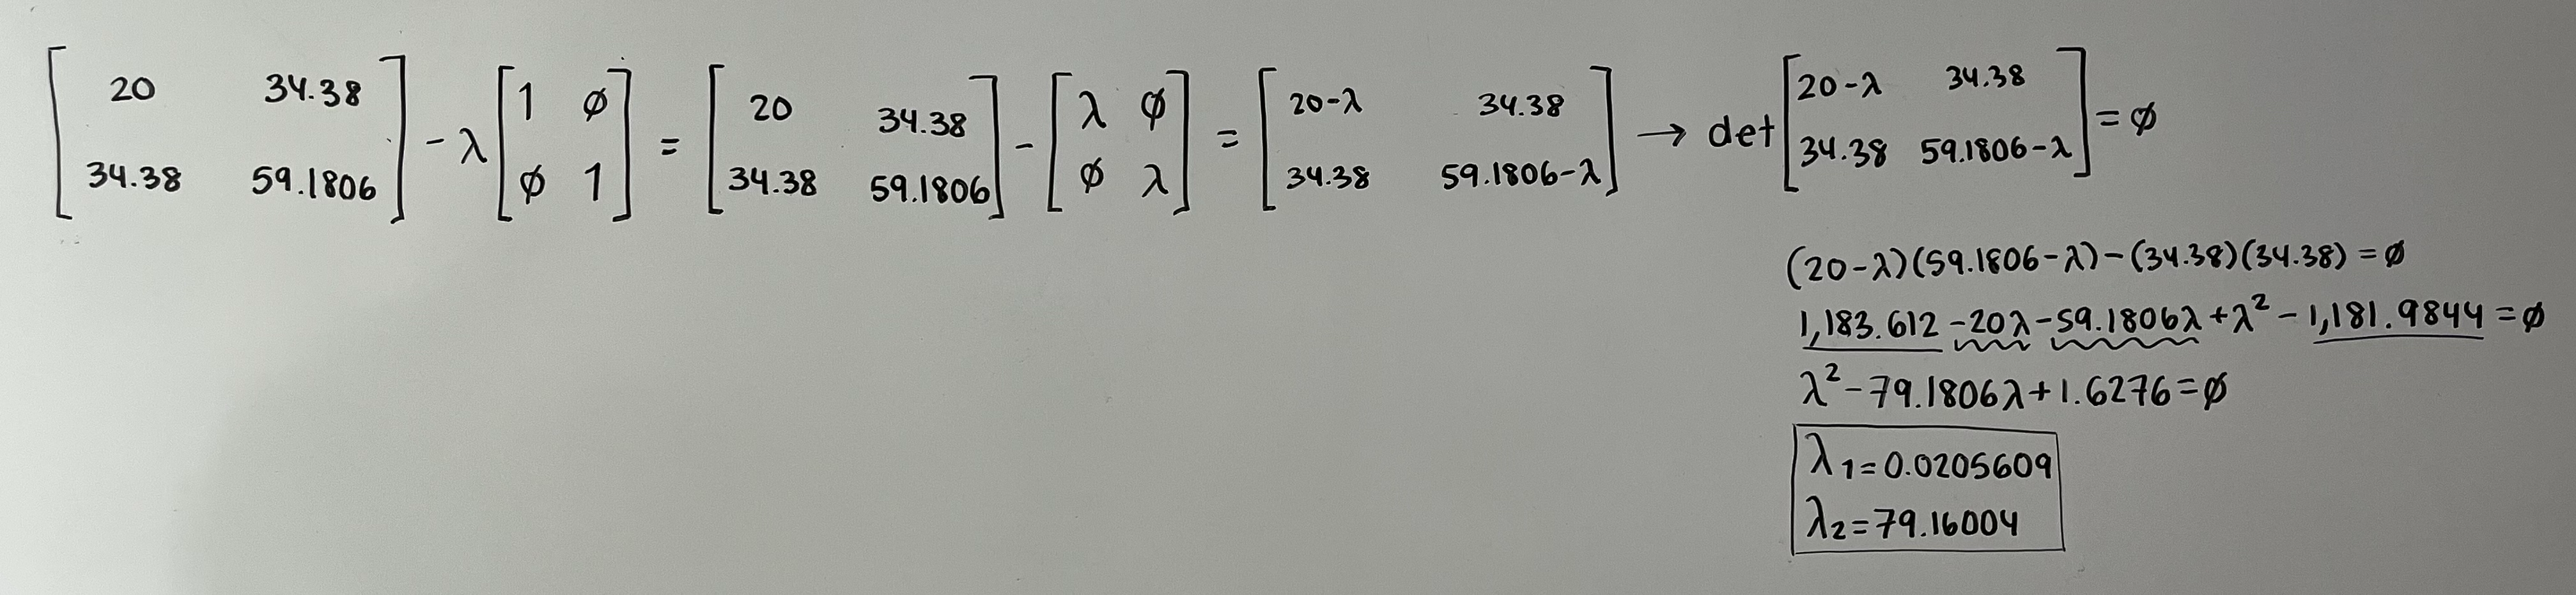 [20 34.38; 34.38 59.1806] - λ[1 ∅; ∅ 1] = [20 34.38; 34.38 59.1806] - [λ ∅; ∅ λ] = [20-λ 34.38; 34.38 59.1806-λ] → det[20-λ 34.38; 34.38 59.1806-λ] = ∅
(20-λ)(59.1806-λ)-(34.38)(34.38) = ∅
1,183.612 -20λ -59.1806λ +λ² - 1,181.9844 = ∅
λ² - 79.1806λ + 1.6276 = ∅
λ1 = 0.0205609
λ2 = 79.16004